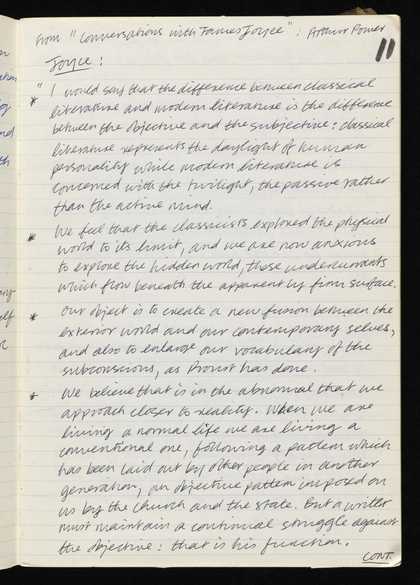 from "Conversations with James Joyce": Arthur Power
11
Joyce:
" I would say that the difference between classical
* literature and modern literature is the difference
between the objective and the subjective: classical
literature represents the daylight of human
personality while modern literature is
concerned with the twilight, the passive rather
than the active mind.
We feel that the classicists explored the physical
* world to its limit, and we are now anxious
to explore the hidden world, those undercurrents
which flow beneath the apparently firm surface.
* Our object is to create a new fusion between the
exterior world and our contemporary selves,
and also to enlarge our vocabulary of the
subconscious, as Proust has done.
* We believe that is in the abnormal that we
approach closer to reality. When we are
living a normal life we are living a
conventional one, following a pattern which
has been laid out by other people in another
generation, an objective pattern imposed on
us by the church and the state. But a writer
must maintain a continual struggle against
the objective: that is his function.
CONT.